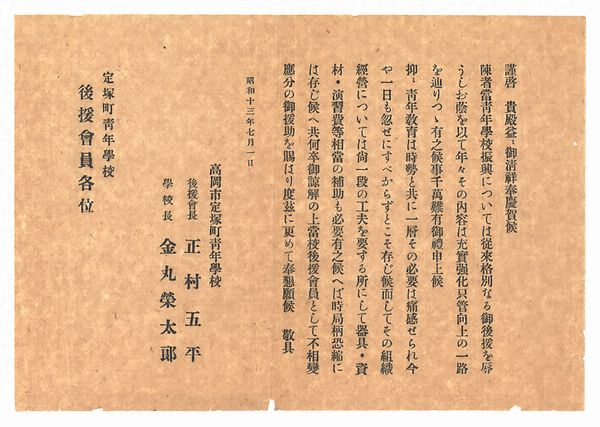 謹啓　貴殿益〻御淸祥奉慶賀候
陳者當靑年學校振興については從來格別なる御後援を辱
うしお蔭を以て年々その内容は充實强化只管向上の一路
を辿りつゝ有之候事千萬難有御禮申上候
抑〻靑年敎育は時勢と共に一層その必要は痛感せられ今
や一日も忽せにすべからずとこそ存じ候而してその組織
經營については尙一段の工夫を要する所にして器具・資
材・演習費等相當の補助も必要有之候へば時局柄恐縮に
は存じ候へ共何卒御諒解の上當校後援會員として不相變
應分の御援助を賜はり度玆に更めて奉懇願候　敬具
昭和十三年七月一日
高岡市定塚町靑年學校
後援會長　正村五平
學校長　金丸榮太郞
定塚町靑年學校
後援會員各位